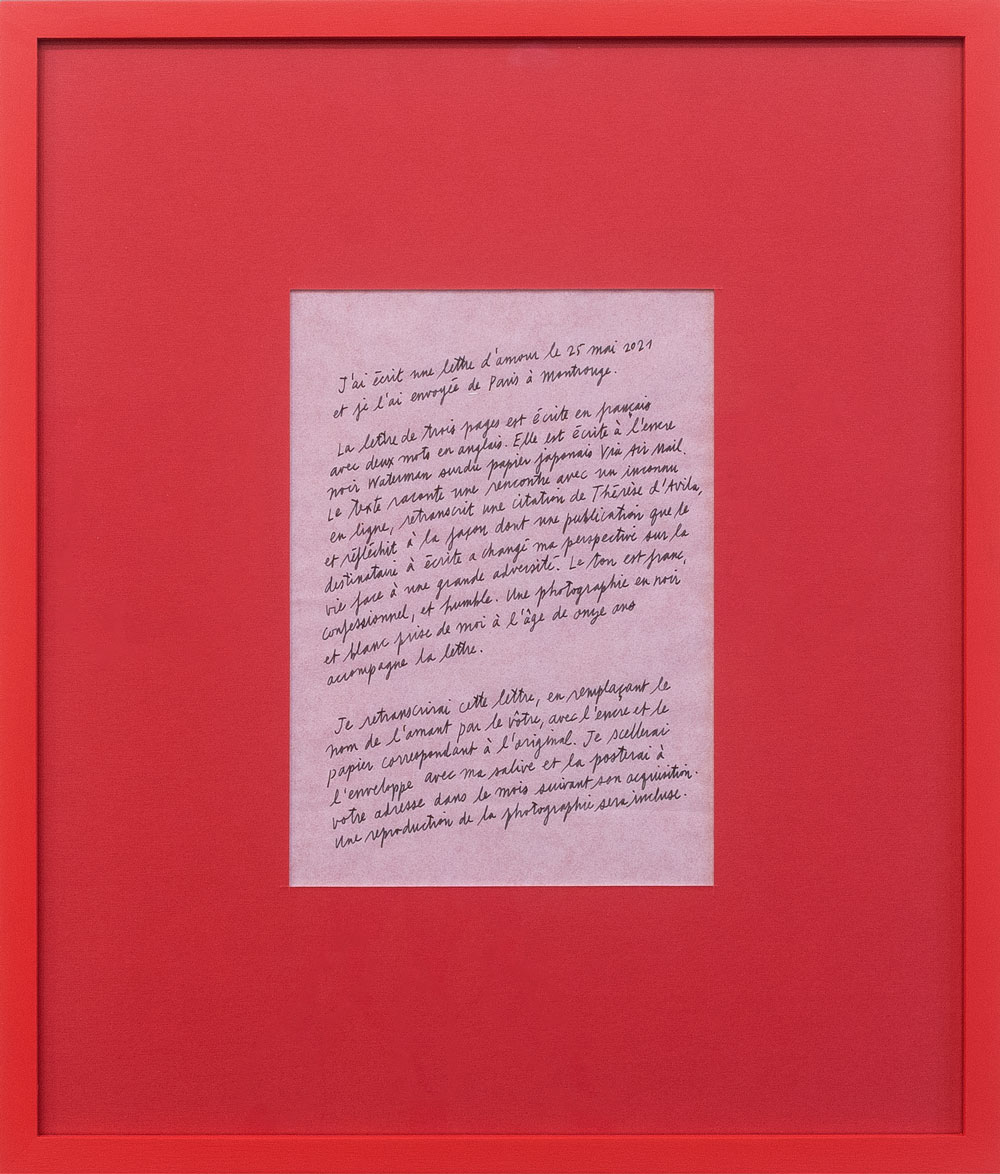 J'ai écrit une lettre d'amour le 25 mai 2021
et je l'ai envoyée de Paris à Montrouge.
La lettre de trois pages est écrite en français
avec deux mots en anglais. Elle est écrite à l'encre
noir Waterman sur du papier japonais Via Air Mail.
Le texte raconte une rencontre avec un inconnu
en ligne, retranscrit une citation de Thérèse d'Avila,
et réfléchit à la façon dont une publication que le
destinataire à écrite a changé ma perspective sur la
vie face à une grande adversité. Le ton est franc,
confessionnel, et humble. Une photographie en noir
et blanc prise de moi à l'âge de onze ans
accompagne la lettre.
Je retranscrirai cette lettre, en remplaçant le
nom de l'amant par le vôtre, avec l'encre et le
papier correspondant à l'original. Je scellerai
l'enveloppe avec ma salive et la posterai à
votre adresse dans le mois suivant son acquisition.
Une reproduction de la photographie sera incluse.